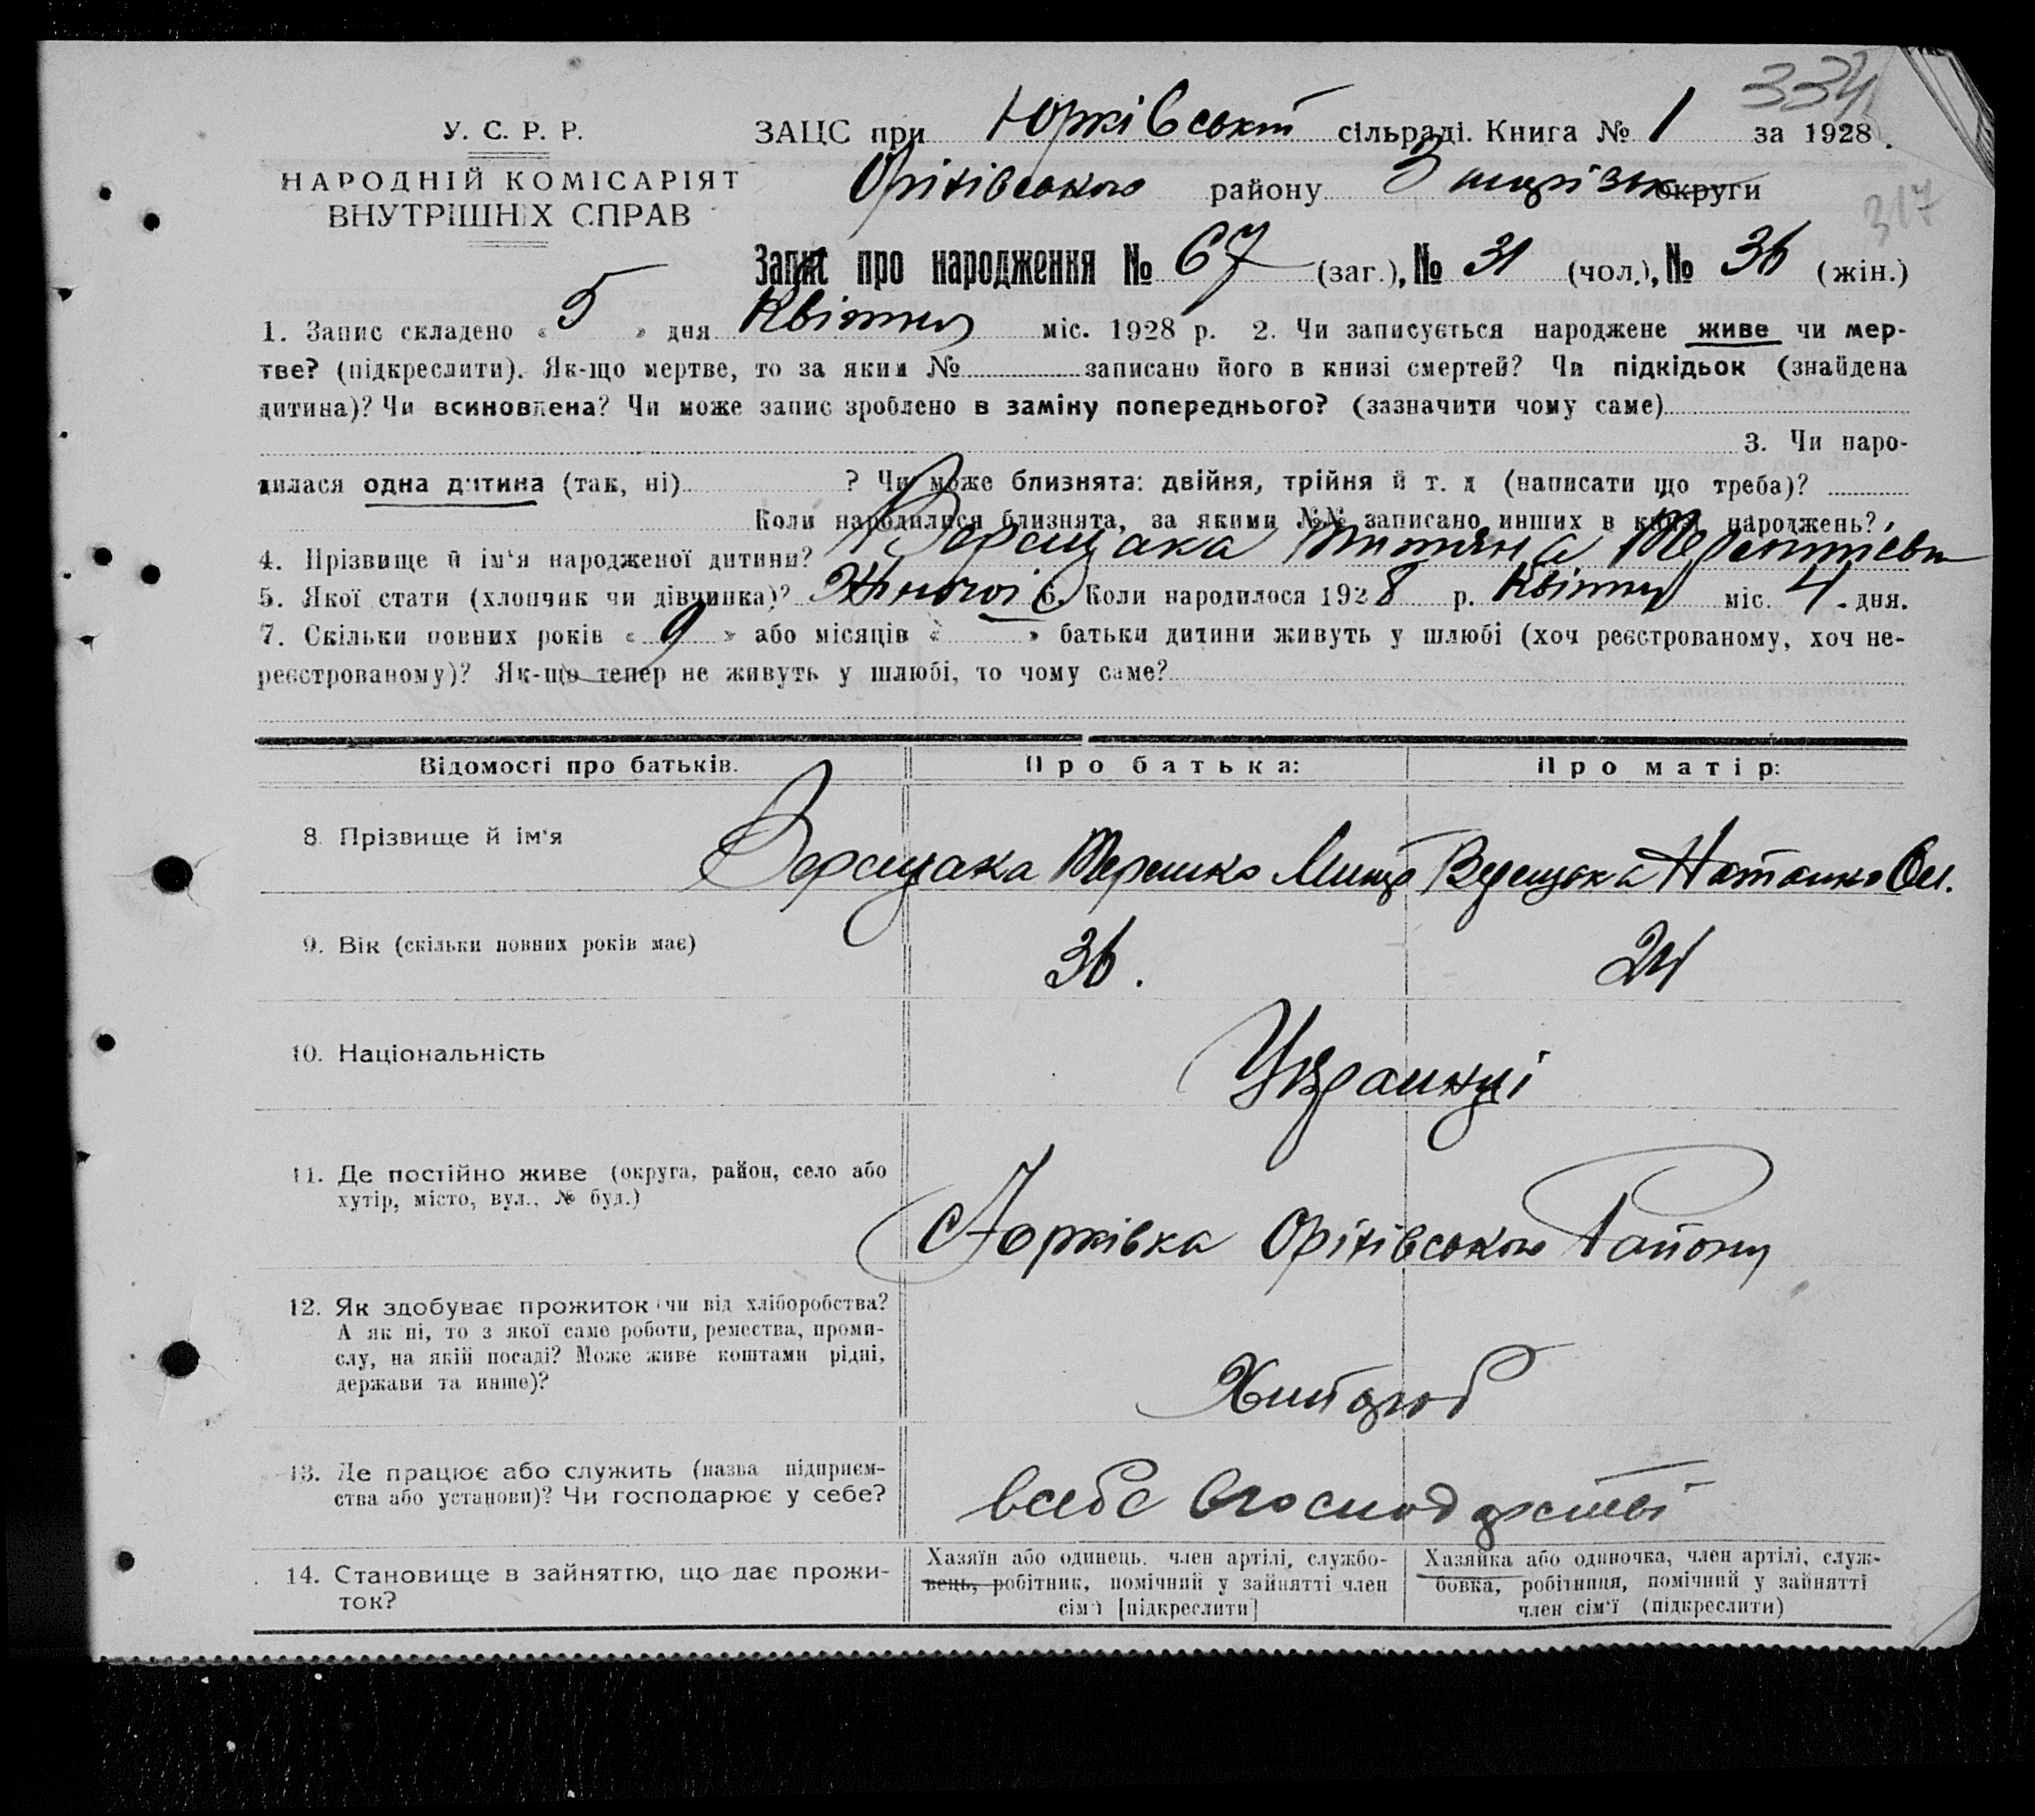 334
У. С. Р. Р.
НАРОДНІЙ КОМІСАРІЯТ
ВНУТРІШНІХ СПРАВ
ЗАЦС при Юрківській сільраді. Книга № 1 за 1928.
Оріхівського району округи
317
Запис про народження № 67 (заг.), № 31 (чол.), № 36 (жін.)
1. Запис складено « 5 » дня Квітня міс. 1928 р. 2. Чи записується народжене живе чи мер-
тве? (підкреслити). Як-що мертве, то за яким № записано його в книзі смертей? Чи підкідьок (знайдена
дитина)? Чи всиновлена? Чи може запис зроблено в заміну попереднього? (зазначити чому саме)
3. Чи наро-
дилася одна дитина (так, ні) ? Чи може близнята: двійня, трійня й т. д (написати що треба)?
Коли народилися близнята, за якими №№ записано инших в книзі народжень?
4. Прізвище й ім'я народженої дитини? Верещака Титяна Терентіевн
5. Якої стати (хлопчик чи дівчинка)? Жіночоі 6. Коли народилося 1928 р. Квітня міс. 4 дня.
7. Скільки повних років « 9 » або місяців « » батьки дитини живуть у шлюбі (хоч реєстрованому, хоч не-
реєстрованому)? Як-що тепер не живуть у шлюбі, то чому саме?
Відомості про батьків. Про батька: Про матір:
8. Прізвище й ім'я Верещака Терешко Верещака Наталко
9. Вік (скільки повних років має) 36. 24
10. Національність Українці
11. Де постійно живе (округа, район, село або
хутір, місто, вул., № буд.)
Юрківка Оріхівського Району
12. Як здобуває прожиток чи від хліборобства?
А як ні, то з якої саме роботи, ремества, проми-
слу, на якій посаді? Може живе коштами рідні,
держави та инше)?
13. Де працює або служить (назва підприєм-
ства або установи)? Чи господарює у себе?
всебе вгосподарстві
14. Становище в зайняттю, що дає прожи-
ток?
Хазяїн або одинець, член артілі, службо-
вець, робітник, помічний у зайнятті член
сім'ї [підкреслити]
Хазяйка або одиночка, член артілі, служ-
бовка, робітниця, помічний у зайнятті
член сім'ї (підкреслити)